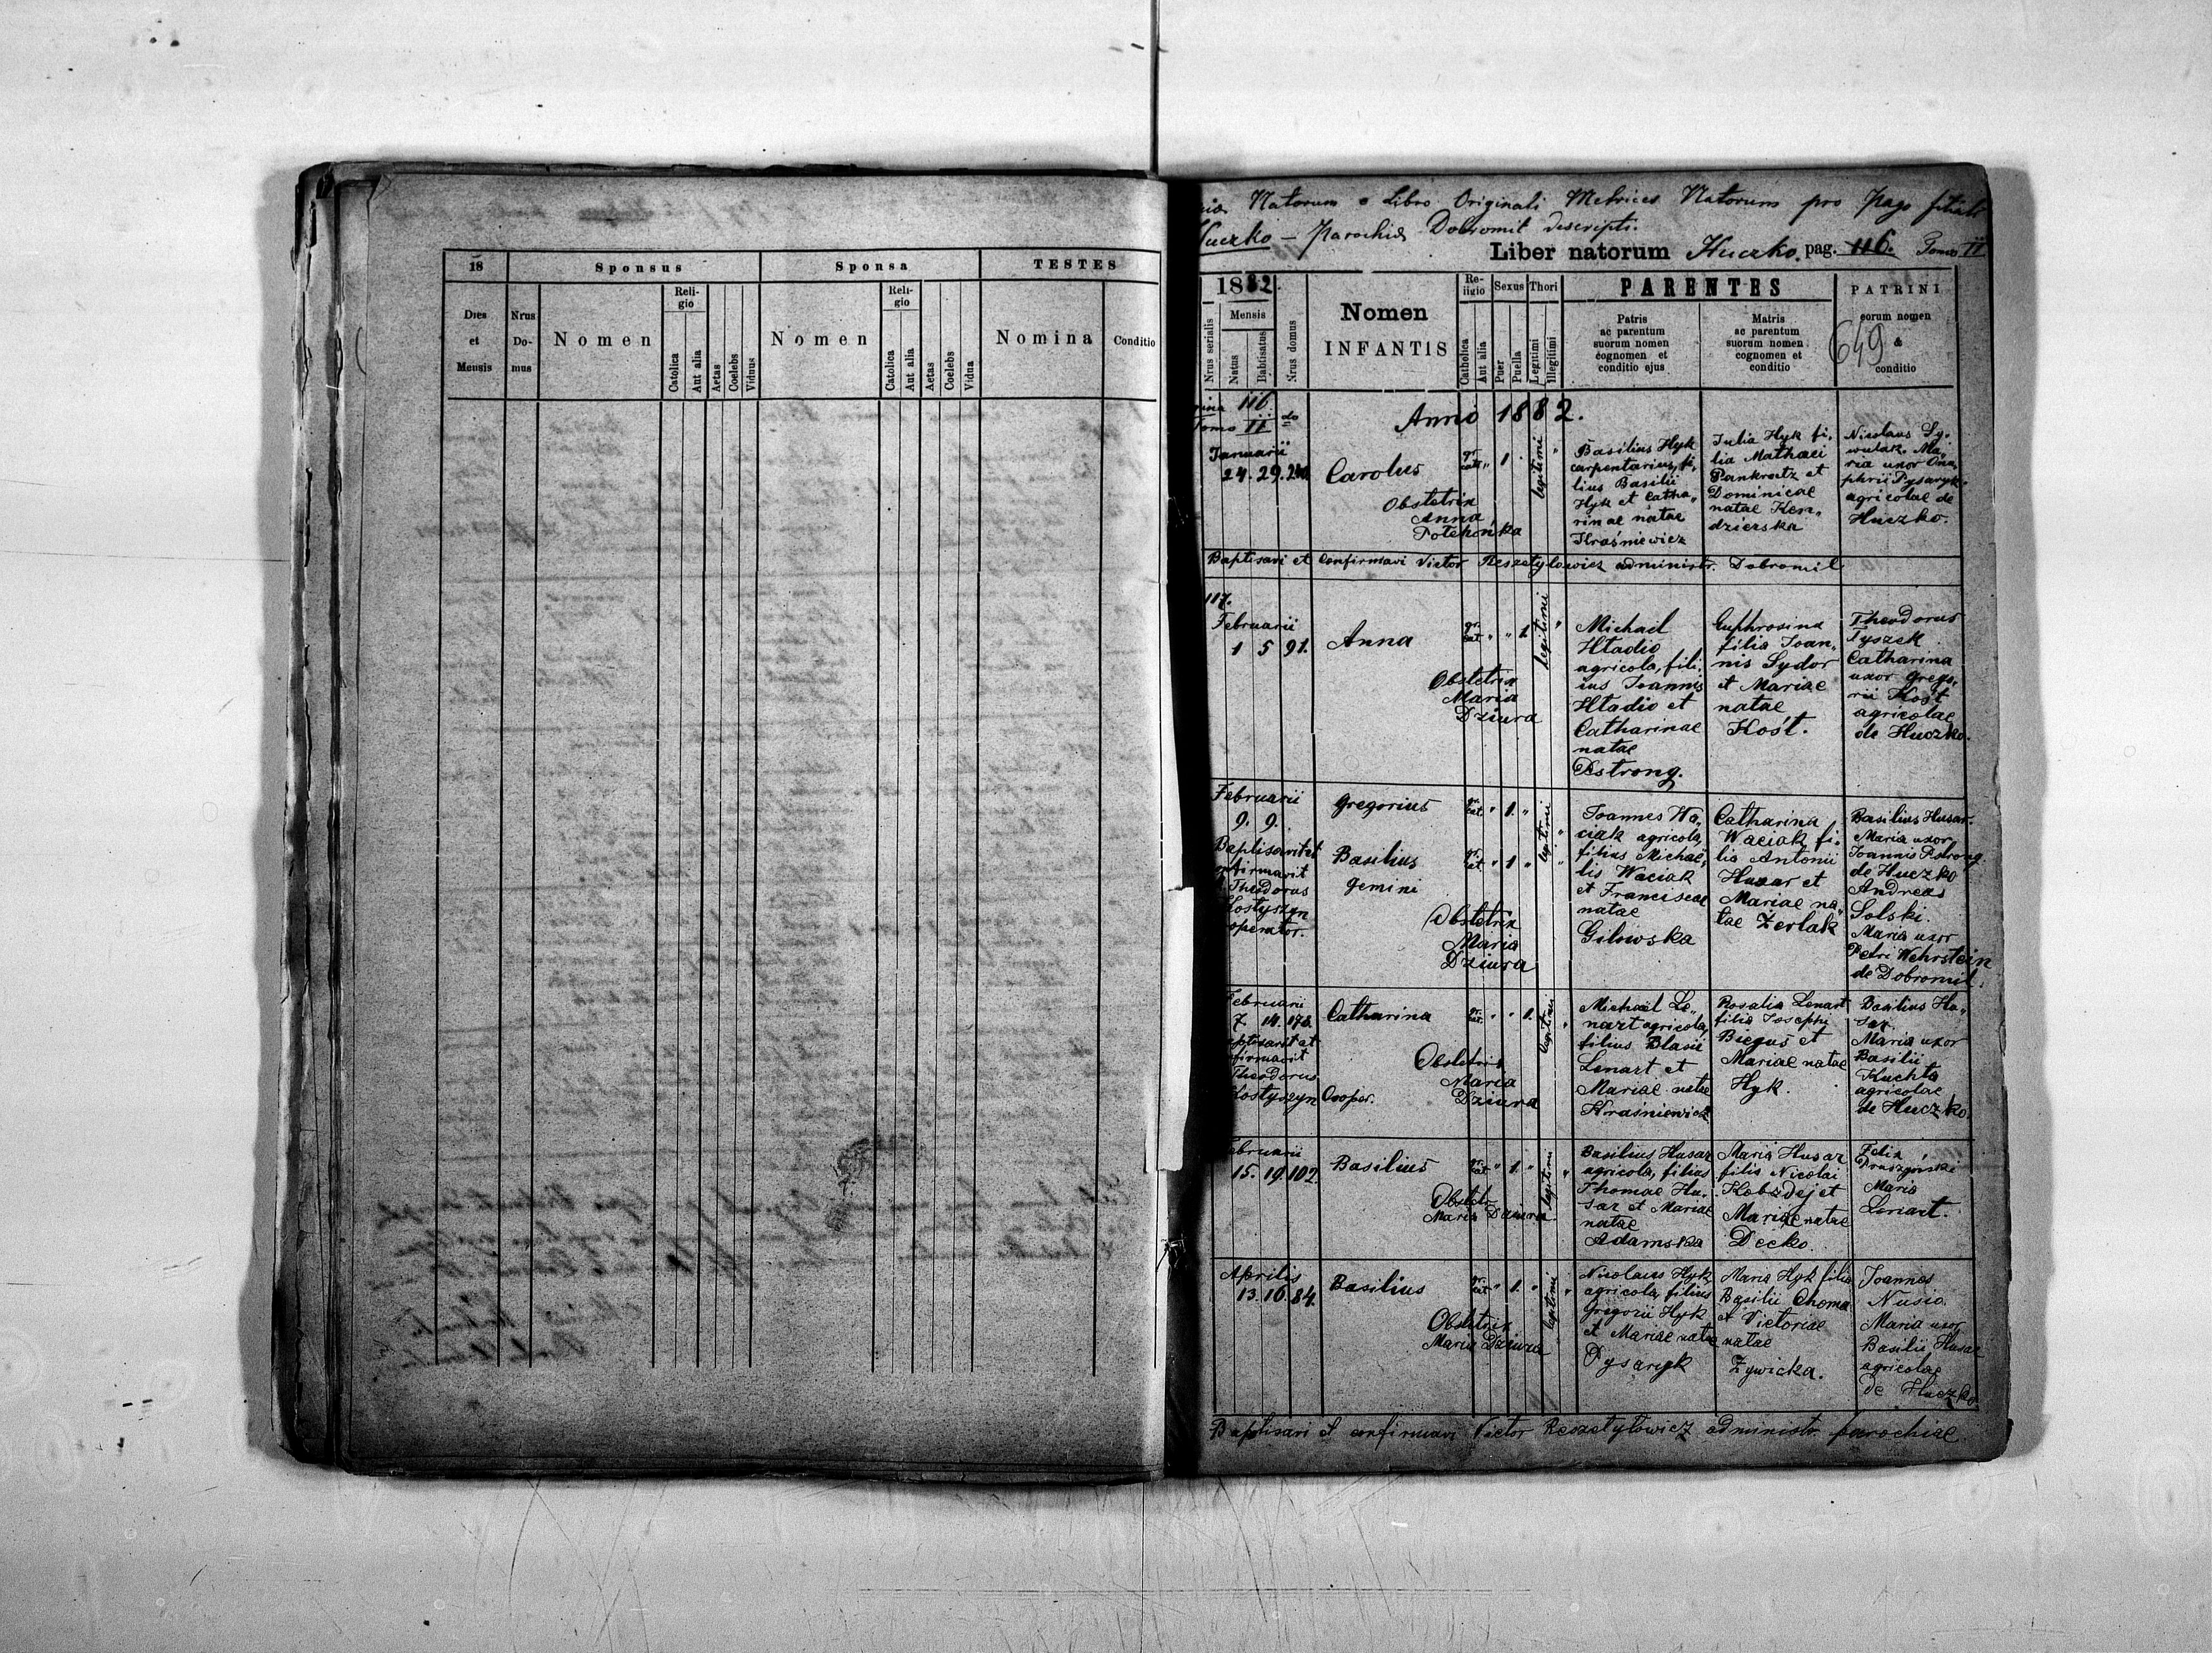 18
Sponsus
Sponsa
TESTES
Dies et Mensis
Nrus Domus
Nomen
Religio
Catolica
Aut alia
Aetas
Coelebs
Viduus
Nomen
Religio
Catolica
Aut alia
Aetas
Coelebs
Vidua
Nomina
Conditio
Natorum e Libro Originali Metrices Natorum pro Pago filiali
Huczko — Parochiæ Dobromil descripti.
Liber natorum Huczko. pag. 116. Tomo II
1882.
Nrus serialis
Mensis
Natus
Babtisatus
Nrus domus
Nomen
INFANTIS
Religio
Catholica
Aut alia
Sexus
Puer
Puella
Thori
Legitimi
Illegitimi
PARENTES
Patris
ac parentum
suorum nomen
cognomen et
conditio ejus
Matris
ac parentum
suorum nomen
cognomen et
conditio
PATRINI
eorum nomen
&
conditio
649
116
Tomo II do
Anno 1882.
Januarii
24. 29.
Carolus
gr. cat. " 1 .
legitimi "
Obstetrix
Anna
Potehonka
Basilius Hyk
carpentarius, fi,
lius Basilii
Hyk et Catha,
rinae natae
Kraśniewicz
Julia Hyk fi,
lia Mathaei
Pankratz et
Dominicae
natae Ken,
dzierska
Nicolaus Sy,
wulak. Ma,
ria uxor Onu,
phrii Pysaryk
agricolae de
Huczko.
Baptisavi et Confirmavi Victor Reszetyłowicz administr. Dobromil
117.
Februarii
1 5 91.
Anna
gr. cat. " " 1.
legitimi "
Obstetrix
Maria
Dziura
Michael
Hladio
agricola, fili,
ius Joannis
Hladio et
Catharinae
natae
Pstrong.
Euphrosina
filia Joan,
nis Sydor
et Mariae
natae
Kość.
Theodorus
Tyszek
Catharina
uxor Grego,
rii Kość
agricolae
de Huczko.
Februarii
9. 9.
Baptisavit et
confirmavit
Theodorus
Kostyszyn
cooperator.
Gregorius
gr. cat. " 1. "
Basilius
gr. cat. " 1 "
gemini
legitimi "
Obstetrix
Maria
Dziura
Joannes Wa,
ciak agricola,
filius Michae,
lis Waciak
et Franciscae
natae
Gilowska
Catharina
Waciak fi,
lia Antonii
Husar et
Mariae na,
tae Żerlak
Basilius Husar.
Maria uxor
Joannis Pstrong.
de Huczko
Andreas
Solski.
Maria uxor
Petri Wehrstein
de Dobromil.
Februarii
7. 14. 178.
Baptisavit et
confirmavit
Theodorus
Kostyszyn Cooper.
Catharina
gr. cat. " " 1.
legitimi "
Obstetrix
Maria
Dziura
Michael Le,
nart agricola,
filius Blasii
Lenart et
Mariae natae
Kraśniewicz
Rosalia Lenart
filia Josephi
Biegus et
Mariae natae
Hyk.
Basilius Hu,
sar.
Maria uxor
Basilii
Kuchta
agricolae
de Huczko.
Februarii
15. 19. 102.
Basilius
gr. cat. " 1. "
legitimi "
Obstetr.
Maria Dziura
Basilius Husar
agricola, filius
Thomae Hu,
sar et Mariae
natae
Adamska
Maria Husar
filia Nicolai
Kobzdej et
Mariae natae
Decko.
Felix
Maria
Lenart.
Aprilis
13. 16. 84.
Basilius
gr. cat. " 1. "
legitimi "
Obstetrix
Maria Dziura
Nicolaus Hyk
agricola, filius
Gregorii Hyk
et Mariae natae
Pysaryk
Maria Hyk filia
Basilii Choma
et Victoriae
natae
Żywicka.
Joannes
Nusio.
Maria uxor
Basilii Husar
agricolae
de Huczko.
Baptisavi et confirmavi Victor Reszetyłowicz administr. parochiae